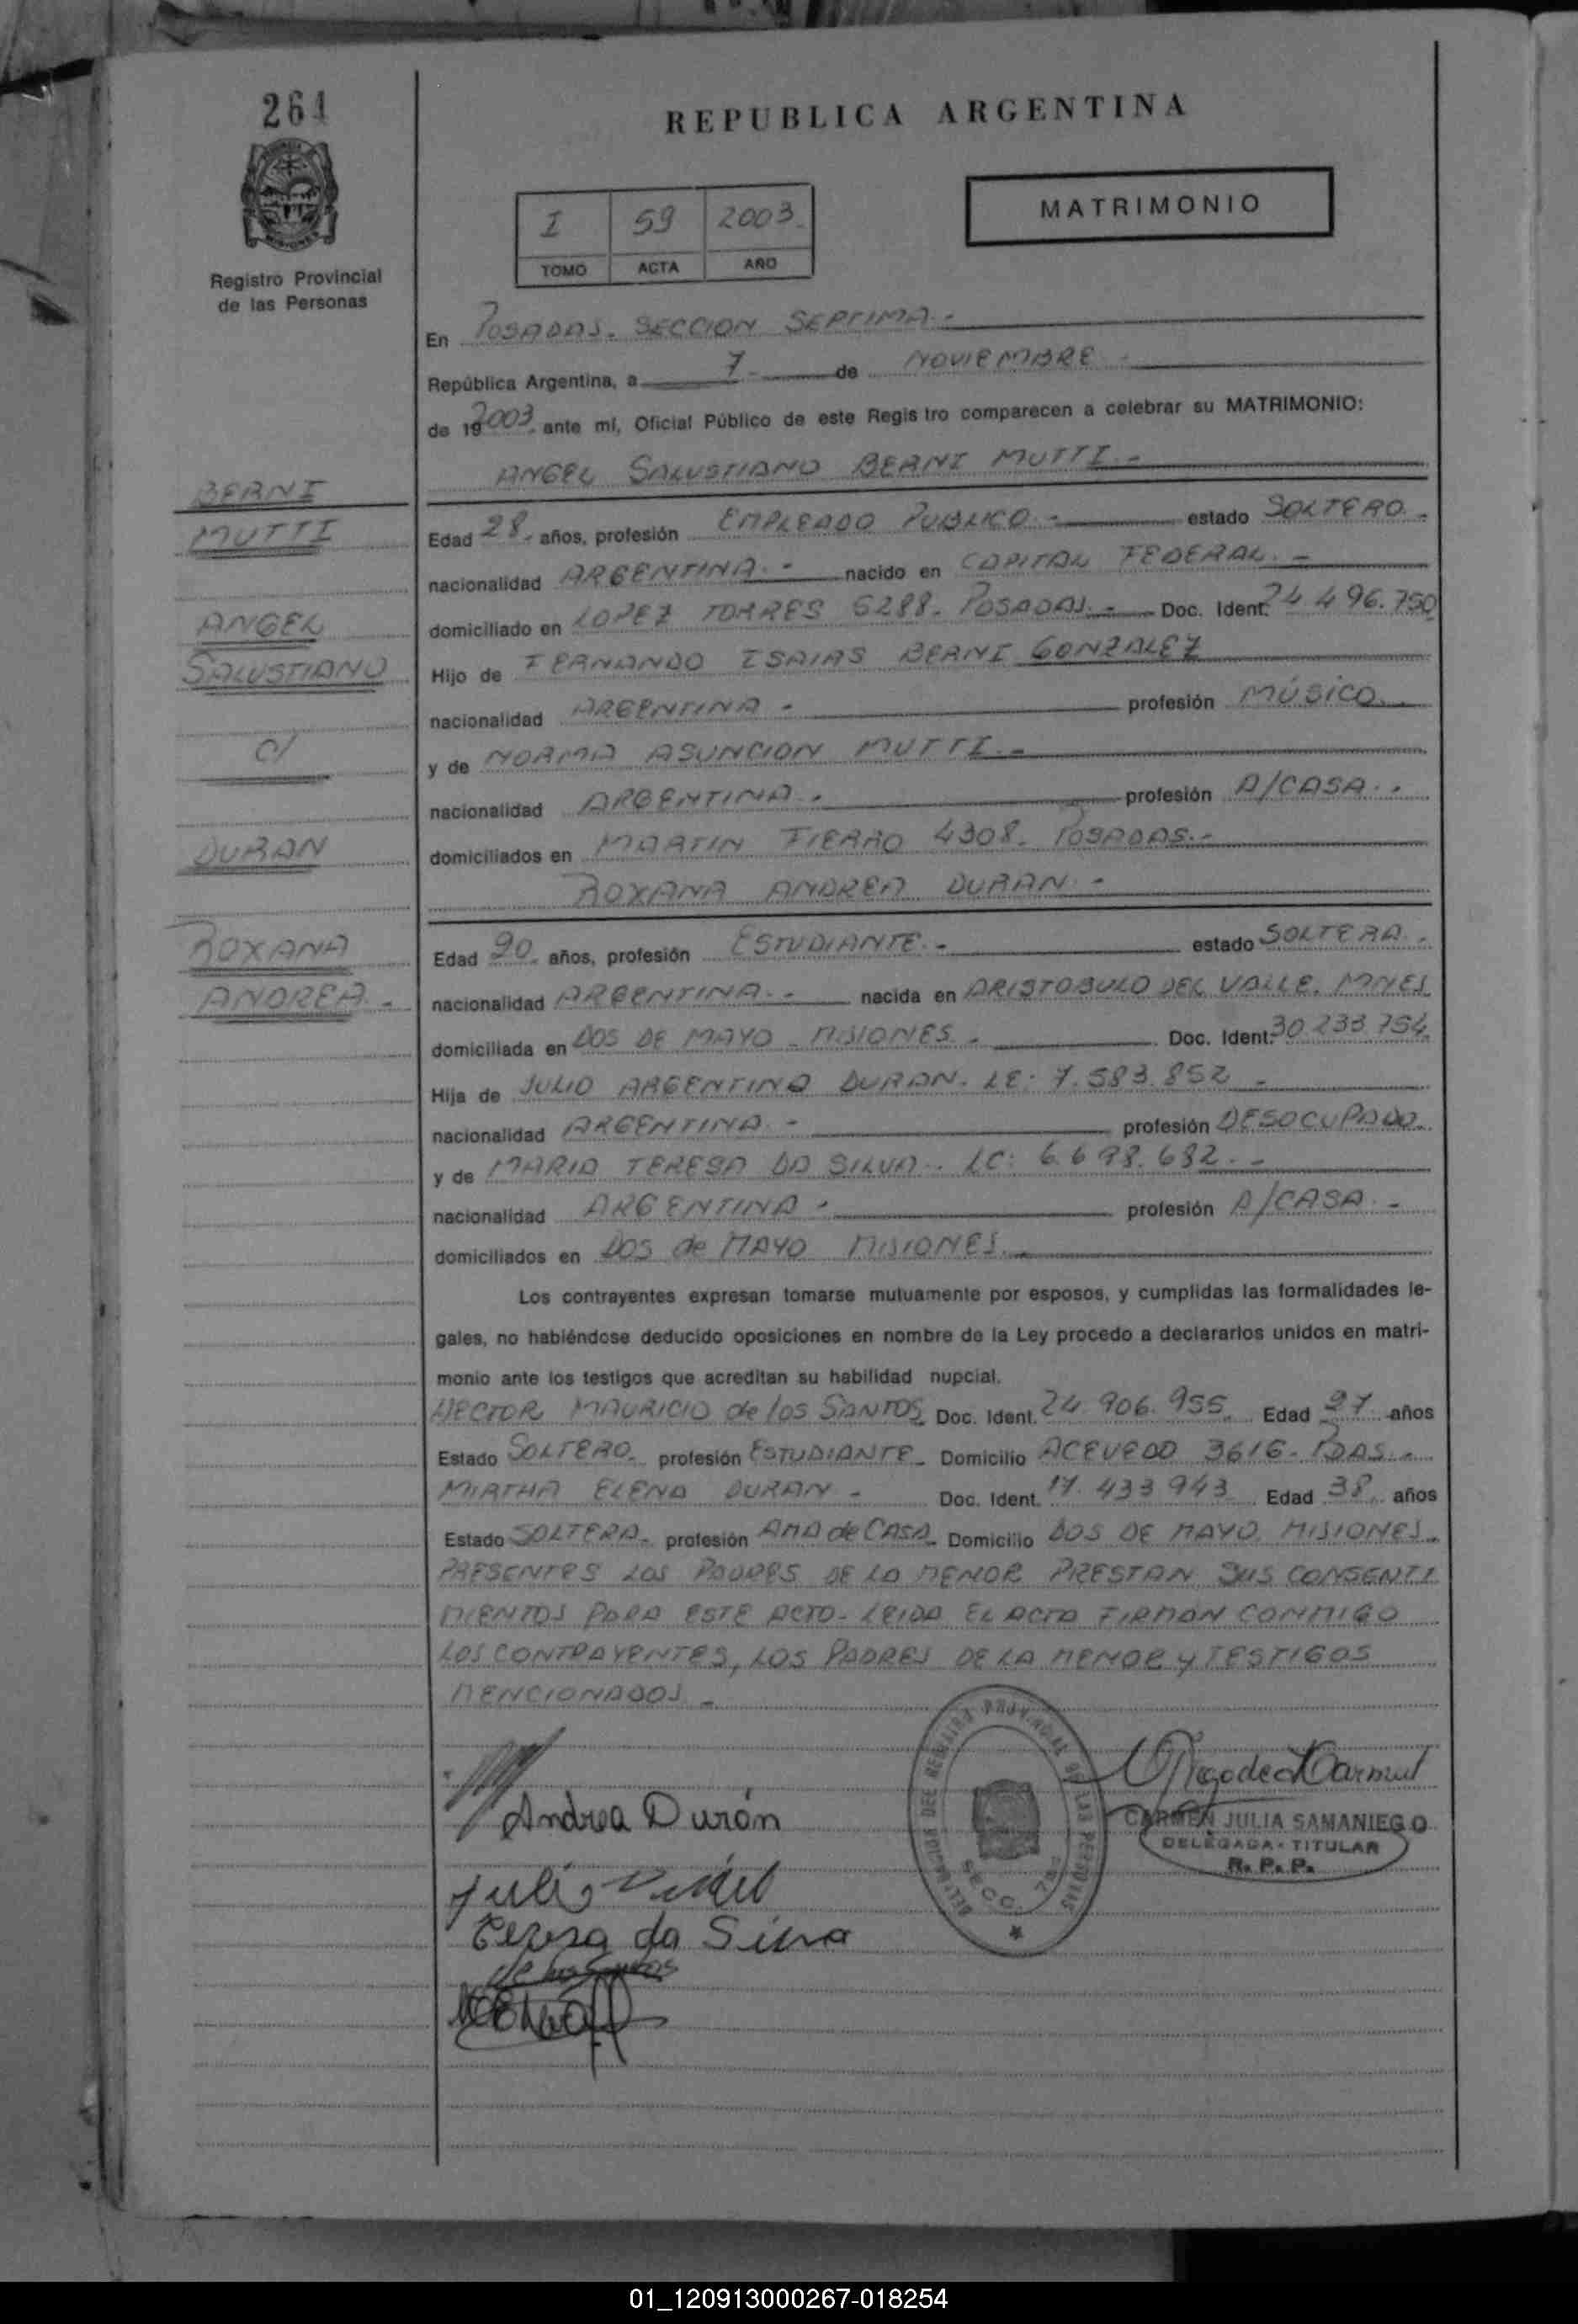 264
REPUBLICA ARGENTINA
I 59 2003.
TOMO ACTA AÑO
MATRIMONIO
MISIONES
Registro Provincial
de las Personas
En POSADAS. SECCION SEPTIMA.-
República Argentina, a 7 - de NOVIEMBRE -
de 19 2003. ante mí, Oficial Público de este Regis tro comparecen a celebrar su MATRIMONIO:
ANGEL SALUSTIANO BERNI MUTTI.-
BERNI
MUTTI
ANGEL
SALUSTIANO
C/
DURAN
ROXANA
ANDREA.-
Edad 28. años, profesión EMPLEADO PUBLICO.- estado SOLTERO.-
nacionalidad ARGENTINA.- nacido en CAPITAL FEDERAL.-
domiciliado en LOPEZ TORRES 6288. POSADAS.- Doc. Ident. 24.496.750
Hijo de FERNANDO ISAIAS BERNI GONZALEZ
nacionalidad ARGENTINA.- profesión MÚSICO.
y de NORMA ASUNCION MUTTI.-
nacionalidad ARGENTINA.- profesión A/CASA.-
domiciliados en MARTIN FIERRO 4308. POSADAS.-
ROXANA ANDREA DURAN.-
Edad 20. años, profesión ESTUDIANTE.- estado SOLTERA.
nacionalidad ARGENTINA.- nacida en ARISTOBULO DEL VALLE. MNES
domiciliada en DOS DE MAYO - MISIONES.- Doc. Ident. 30.233.754.
Hija de JULIO ARGENTINO DURAN. LE: 7.583.852 -
nacionalidad ARGENTINA.- profesión DESOCUPADO.
y de MARIA TERESA DA SILVA.. LC: 6.698.682.-
nacionalidad ARGENTINA - profesión A/CASA.-
domiciliados en DOS de MAYO MISIONES.-
Los contrayentes expresan tomarse mutuamente por esposos, y cumplidas las formalidades le-
gales, no habiéndose deducido oposiciones en nombre de la Ley procedo a declararlos unidos en matri-
monio ante los testigos que acreditan su habilidad nupcial.
HECTOR MAURICIO de los SANTOS Doc. Ident. 24.906.955. Edad 27 años
Estado SOLTERO. profesión ESTUDIANTE. Domicilio ACEVEDO 3616. PDAS.-
MIRTHA ELENA DURAN - Doc. Ident. 17.433.943 Edad 38. años
Estado SOLTERA. profesión AMA de CASA. Domicilio DOS DE MAYO. MISIONES.
PRESENTES LOS PADRES DE LA MENOR PRESTAN SUS CONSENTI
MIENTOS PARA ESTE ACTO- LEIDA EL ACTA FIRMAN CONMIGO
LOS CONTRAYENTES, LOS PADRES DE LA MENOR y TESTIGOS
MENCIONADOS.-
Andrea Durán
CARMEN JULIA SAMANIEGO
DELEGADA - TITULAR
R. P. P.
Teresa da Silva
de los Santos
01_120913000267-018254